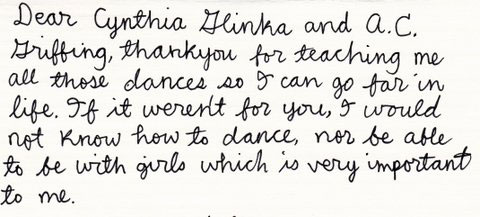 Dear Cynthia Glinka and A.C.
Griffing, thankyou for teaching me
all those dances so I can go far in
life. If it weren't for you, I would
not know how to dance, nor be able
to be with girls which is very important
to me.